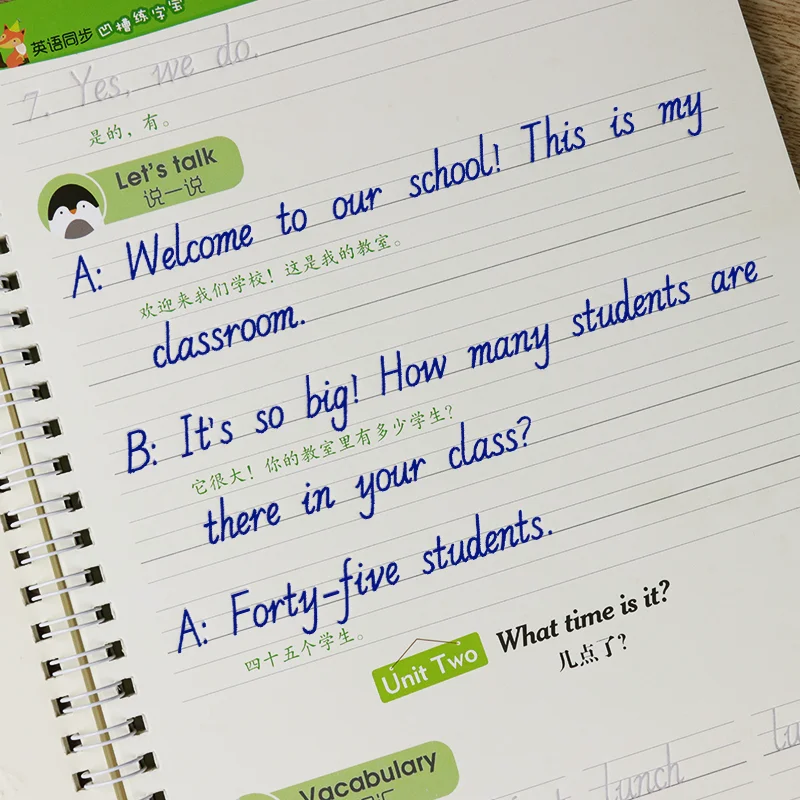 英语同步 凹槽练字宝
7. Yes, we do.
是的，有。
Let's talk
说一说
A: Welcome to our school! This is my
欢迎来我们学校！这是我的教室。
classroom.
B: It's so big! How many students are
它很大！你的教室里有多少学生？
there in your class?
A: Forty-five students.
四十五个学生。
Unit Two What time is it?
几点了？
Vacabulary
lunch